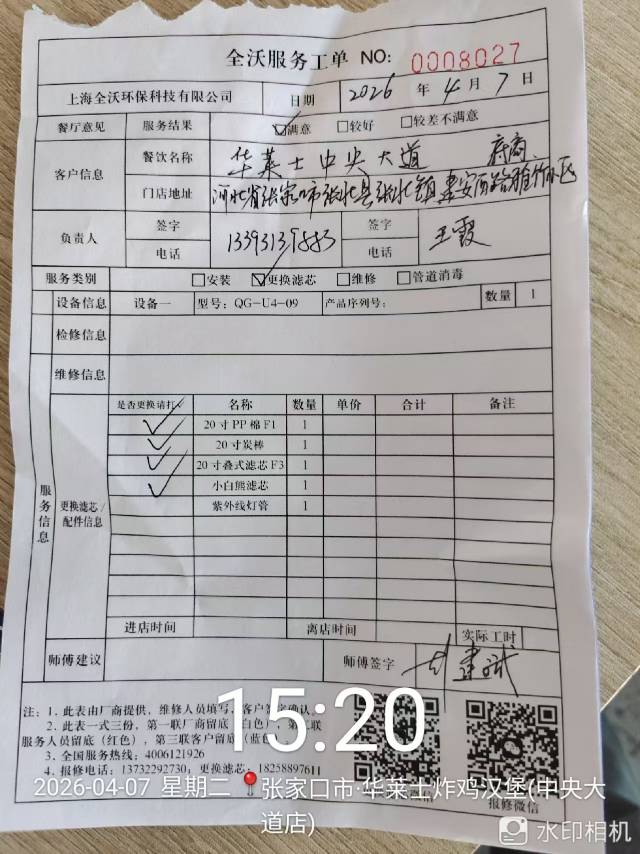 全沃服务工单 NO: 0008027
上海全沃环保科技有限公司 日期 2026 年 4 月 7 日
餐厅意见 服务结果 ☑满意 □较好 □较差不满意
客户信息 餐饮名称 华莱士中央大道
门店地址 河北省张家口市张北县张北镇
负责人 签字 签字 王霞
电话 13393139883 电话
服务类别 □安装 ☑更换滤芯 □维修 □管道消毒
设备信息 设备一 型号: QG-U4-09 产品序列号: 数量 1
检修信息
维修信息
服务信息
更换滤芯/配件信息
是否更换请打√ 名称 数量 单价 合计 备注
✓ 20寸PP棉F1 1
✓ 20寸炭棒 1
✓ 20寸叠式滤芯F3 1
✓ 小白熊滤芯 1
紫外线灯管 1
进店时间 离店时间 实际工时
师傅建议 师傅签字
注: 1. 此表由厂商提供, 维修人员填写, 客户签字确认
2. 此表一式三份, 第一联厂商留底(白色), 第二联
服务人员留底(红色), 第三联客户留底(蓝色)
3. 全国服务热线: 4006121926
4. 报修电话: 13732292730; 更换滤芯: 18258897611
报修微信
15:20
2026-04-07 星期二 张家口市·华莱士炸鸡汉堡(中央大
道店)
水印相机